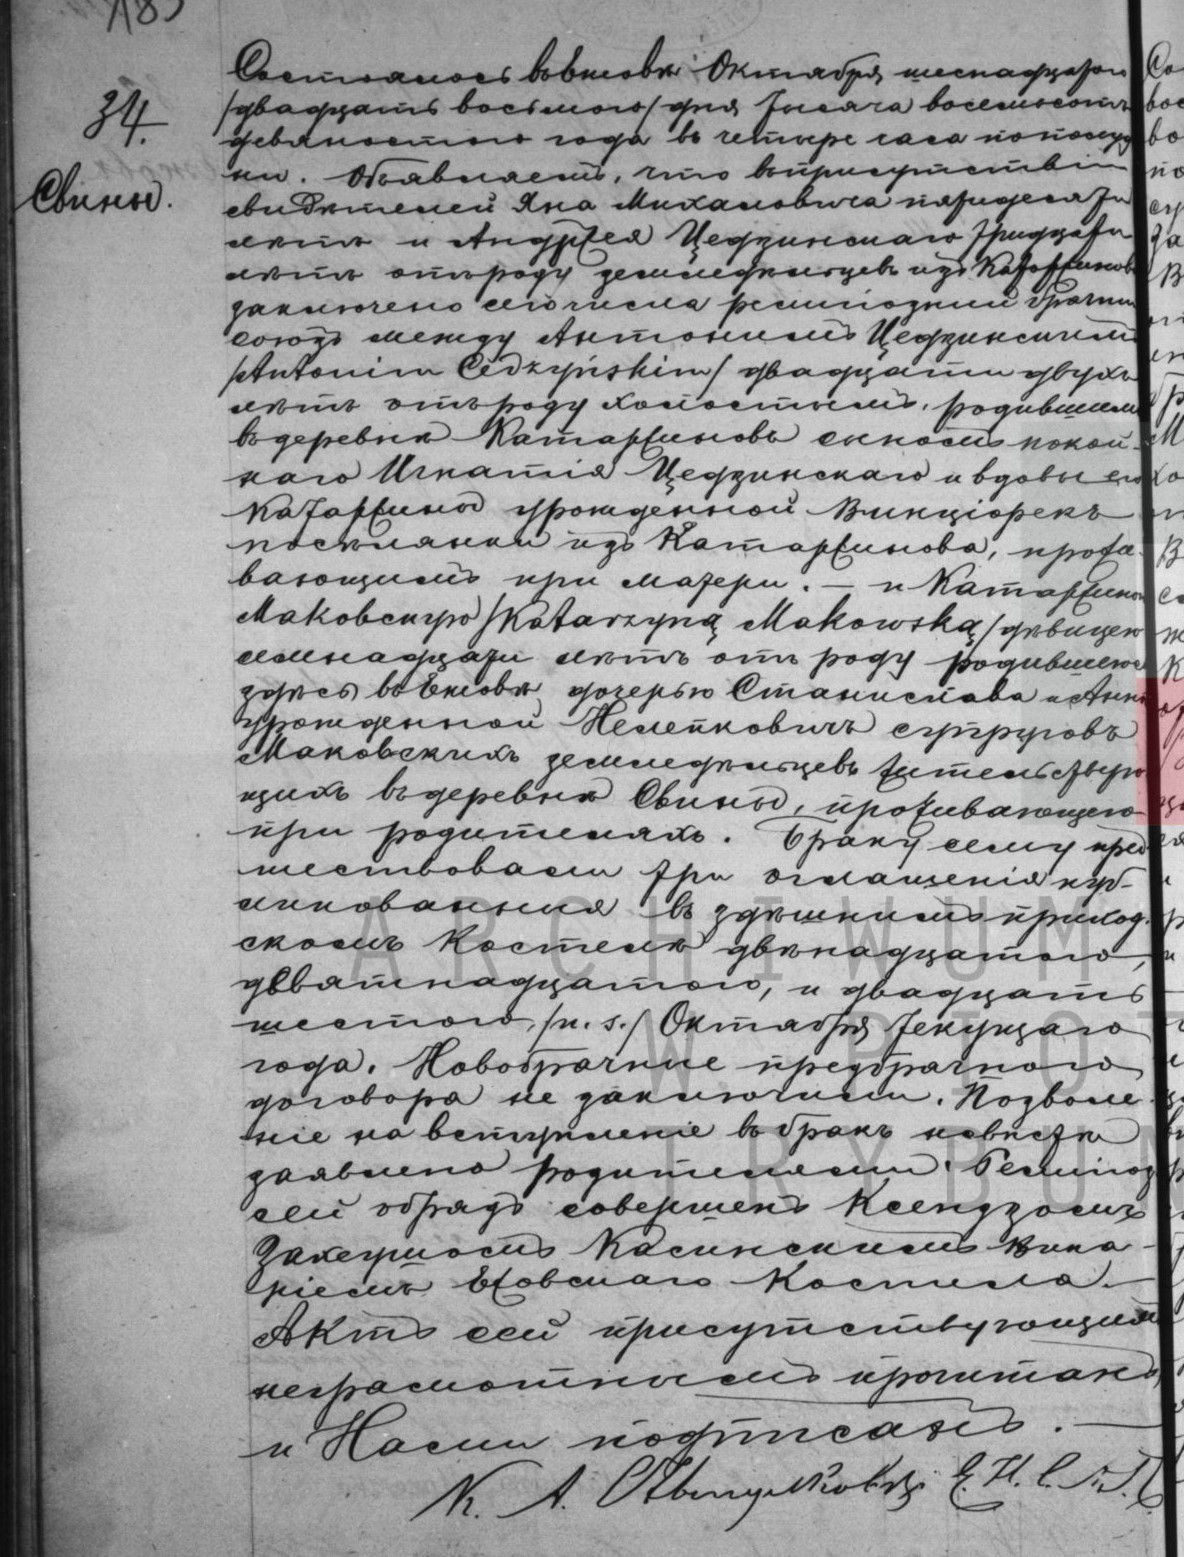 185
34.
Свины.
Состоялось въ Ежовѣ Октября шеснадцатого
/двадцать восьмого/ дня тысяча восемьсотъ
девяностого года въ четыре часа пополуд
ни. Объявляемъ, что въ присутствіи
свидѣтелей Яна Михаловича пятидесяти
лѣтъ и Андржея Цедзинскаго тридцати
лѣтъ отъ роду земледѣльцевъ изъ Катаржинова
заключено сего числа религіозный брачный
союзъ между Антонимъ Цедзинскимъ
/Antonim Cedzyńskim/ двадцати двухъ
лѣтъ отъ роду холостымъ, родившимся
въ деревнѣ Катаржиновъ сыномъ покой-
наго Игнатія Цедзинскаго и вдовы его
Катаржины урожденной Винціорекъ
поселянки изъ Катаржинова, прожи-
вающимъ при матери. — и Катаржиною
Маковскую /Katarzyną Makowską/ дѣвицею
лѣтъ отъ роду родившеюся
здѣсь въ Ежовѣ дочерью Станислава и Анны
урожденной супруговъ
Маковскихъ земледѣльцевъ жительствую
щихъ въ деревнѣ Свины, проживающею
при родителяхъ. Браку сему пред
шествовали три оглашенія пуб-
ликованныя въ здѣшнимъ приход-
скомъ Костелѣ двѣнадцатого,
девятнадцатого, и двадцать
шестого, /н. s./ Октября текущаго
года. Новобрачные предбрачного
договора не заключили. Позволе
ніе на вступленіе въ бракъ невѣсты
заявлено родителями. Религіоз
сей обрядъ совершенъ Ксендзомъ
Касинскимъ Вика-
ріемъ Ежовскаго Костела.—
Актъ сей присутствующимъ
неграмотнымъ прочитанъ
и Нами подписанъ. —
К. А.
ARCHIWUM
W PIOT
RYBU